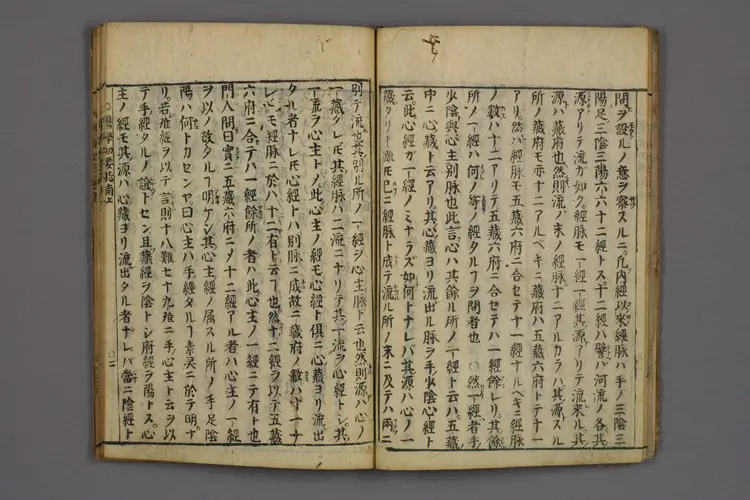 問ヲ設ルノ意ヲ察スルニ凡内經以來經脉ハ手ノ三陰三
陽足ノ三陰三陽六六十二經トス十二經ハ譬バ河流ノ各其
源アリテ流ガ如ク經脉モ一經一經其源アリテ流來ル其
源ハ藏府也然則流ノ末ノ經脉十二アルカラハ其源スル
所ノ藏府モ亦十二アルベキニ藏府ハ五藏六府トテ十一
アリ然バ經脉モ五藏六府ニ合セテ十一經ナルベキニ經脉
ノ數ハ十二アリテ五藏六府ニ合セテハ一經餘レリ其餘
所ノ一經ハ何ノ等ノ經タルヲ問者也 ○然一經者手
少陰與心主別脉也此言心ハ其餘ル所ノ一經ト云ハ五藏
中ニ心藏ト云アリ其心藏ヨリ流出ル脉ヲ手少陰心經ト
云此心經ガ一經ノミナラズ如何トナレバ其源ハ心ノ一
藏タリト雖モ已ニ經脉ト成テ流ル所ノ末ニ及テハ兩ニ
別テ流也其別ル所ノ一經ヲ心主脉ト云也然則源ハ心ノ
一藏タレモ其經脉ハ二流ニナリテ其一流ヲ心經トシ其
一流ヲ心主トノ此心主ノ經モ心經ト俱ニ心藏ヨリ流出
タル者ナレモ心經トハ別脉ニ成故ニ藏府ノ數ハ十一ナ
レモ經脉ニ於ハ十二有ト云フ也然十二經ヲ以テ五藏
六府ニ合テハ一經餘所ノ者ハ此心主ノ一經ニテ有ト也
門人問曰實ニ五藏六府ニメ十二經アル者ハ心主ノ一經
ヲ以ノ故タルフ明ケシ其心主經ノ属スル所ノ手足陰
陽ハ何トカセンヤ曰心主ハ手經タルフ素灵ニ於テ明ナ
リ若難經ヲ以テ言則十八難七十九難ニ手心主ト云ヲ以
テ手經タルノ證トセン且藏經ヲ陰トシ府經ヲ陽トス心
主ノ經モ其源ハ心藏ヨリ流出タル者ナレバ當ニ陰經ト